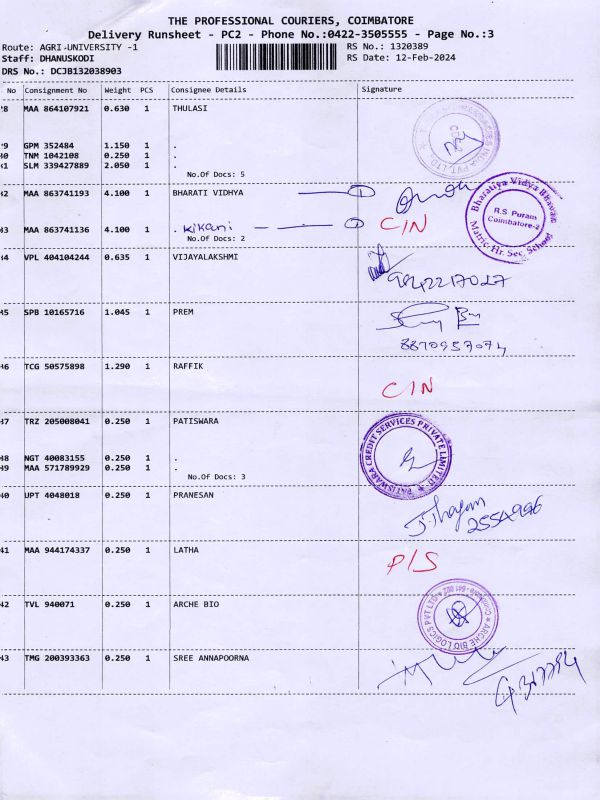 THE PROFESSIONAL COURIERS, COIMBATORE
Delivery Runsheet - PC2 - Phone No.:0422-3505555 - Page No.:3
Route: AGRI-UNIVERSITY -1 RS No.: 1320389
Staff: DHANUSKODI RS Date: 12-Feb-2024
DRS No.: DCJB132038903
No Consignment No Weight PCS Consignee Details Signature
38 MAA 864107921 0.630 1 THULASI
39 GPM 352484 1.150 1 .
40 TNM 1042108 0.250 1 .
41 SLM 339427889 2.050 1 .
No.Of Docs: 5
42 MAA 863741193 4.100 1 BHARATI VIDHYA 1
Bharatiya Vidya Bhavan
R.S Puram
Coimbatore-2
Matric.Hr.Sec.School
43 MAA 863741136 4.100 1 . Kikani C/N
No.Of Docs: 2
44 VPL 404104244 0.635 1 VIJAYALAKSHMI
9842217027
45 SPB 10165716 1.045 1 PREM
8870957074
46 TCG 50575898 1.290 1 RAFFIK
C/N
47 TRZ 205008041 0.250 1 PATISWARA
PATISWARA CREDIT SERVICES PRIVATE LIMITED
48 NGT 40083155 0.250 1 .
49 MAA 571789929 0.250 1 .
No.Of Docs: 3
40 UPT 4048018 0.250 1 PRANESAN
2554996
41 MAA 944174337 0.250 1 LATHA
P/S
42 TVL 940071 0.250 1 ARCHE BIO
ARCHE BIO LOGICS PVT LTD
43 TMG 200393363 0.250 1 SREE ANNAPOORNA